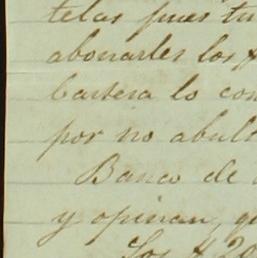 telas pues tu
abonarles los $
cartera lo con
por no abult
Banco de
y opinan, q
Los $ 20